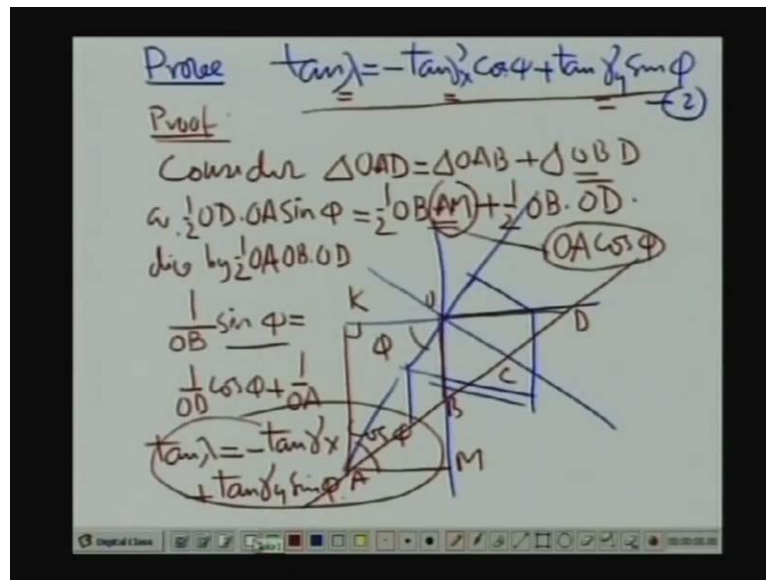 Prove tanλ = -tanγx cosφ + tanγy sinφ
— (2)
Proof.
Consider ΔOAD = ΔOAB + ΔOBD
or ½ OD·OA sinφ = ½ OB(AM) + ½ OB·OD.
div by ½ OA OB·OD
OA cosφ
1/OB sinφ =
1/OD cosφ + 1/OA
tanλ = -tanγx
+ tanγy sinφ
K
O
D
φ
C
B
cosφ
A
M
Digital Class